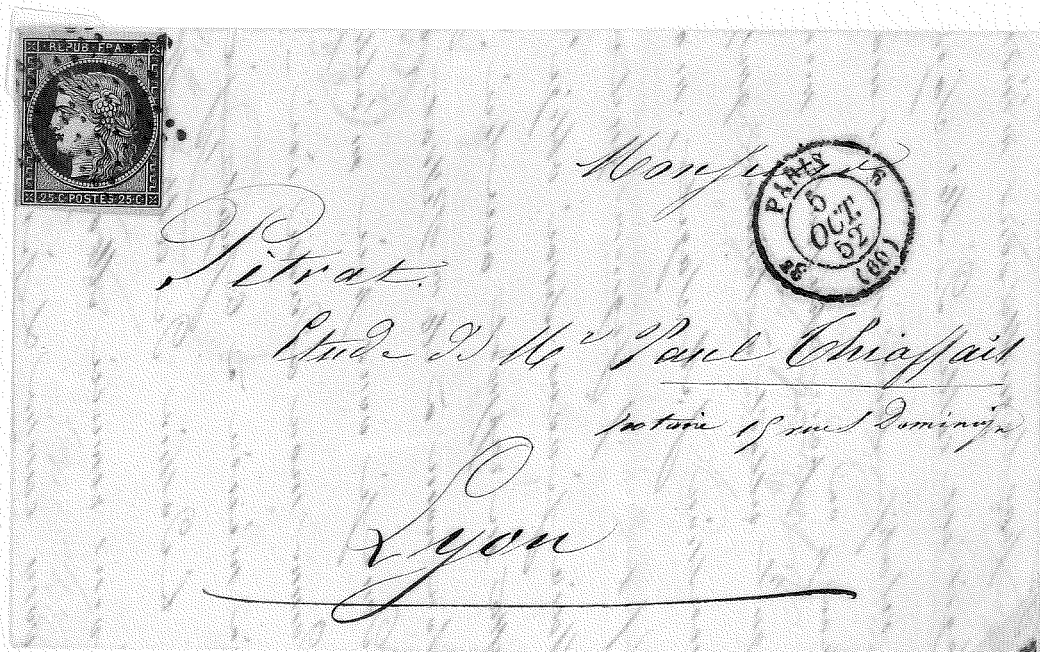 REPUB FRANC
25 C POSTES 25 C
Monsieur
PARIS
5
OCT.
52
(60)
Pitrat.
Etude de Me Paul Chiaffait
notaire 15 rue S Dominique
Lyon